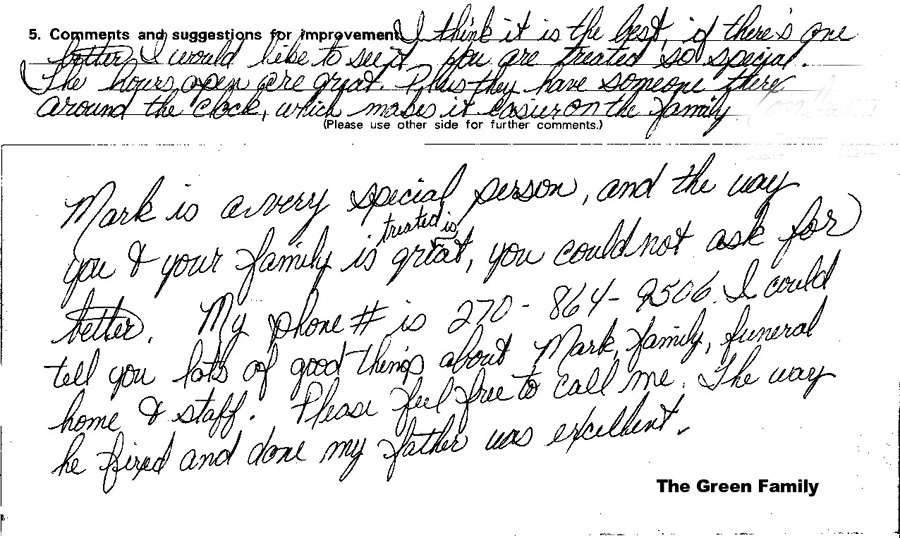 5. Comments and suggestions for improvement I think it is the best, if there's one
better I would like to see it. You are treated so special.
The hours open are great. Plus they have someone there
around the clock, which makes it easier on the family
(Please use other side for further comments.)
Mark is a very special person, and the way
you & your family is treated is great, you could not ask for
better. My phone # is 270-864-2506. I could
tell you lots of good things about Mark, family, funeral
home & staff. Please feel free to call me. The way
he fixed and done my father was excellent.
The Green Family